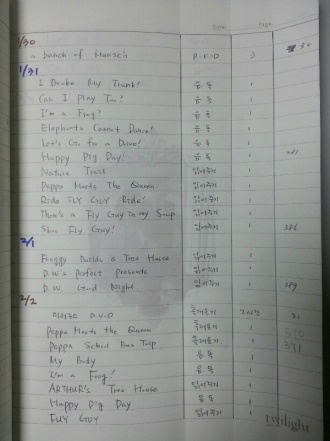 Date. Page.
1/30
a bunch of D.V.D 3 30
1/31
I Broke My Trunk! 음독 1
Can I Play Too? 음독 1
I'm a Frog! 음독 1
Elephants Cannot Dance! 음독 1
Let's Go for a Drive! 음독 1
Happy Pig Day! 음독 1
Nature 읽어주기 1
Peppa Meets the Queen 읽어주기 1
Ride FLY GUY Ride! 읽어주기 1
There's a Fly Guy in my Soup 읽어주기 1
Shoo Fly Guy! 읽어주기 1 386
2/1
Froggy Builds a Tree House 읽어주기 1
D.W.'s Perfect Presents 읽어주기 1
D.W. Good Night 읽어주기 1 389
2/2
D.V.D 흘려듣기 2시간
Peppa Meets the Queen 흘려듣기 1 390
Peppa School Bus Trip 흘려듣기 1 391
My Body 음독 1
I'm a Frog! 음독 1
ARTHUR's Tree House 읽어주기 1
Happy Pig Day 음독 1
FLY GUY 읽어주기 1
twilight